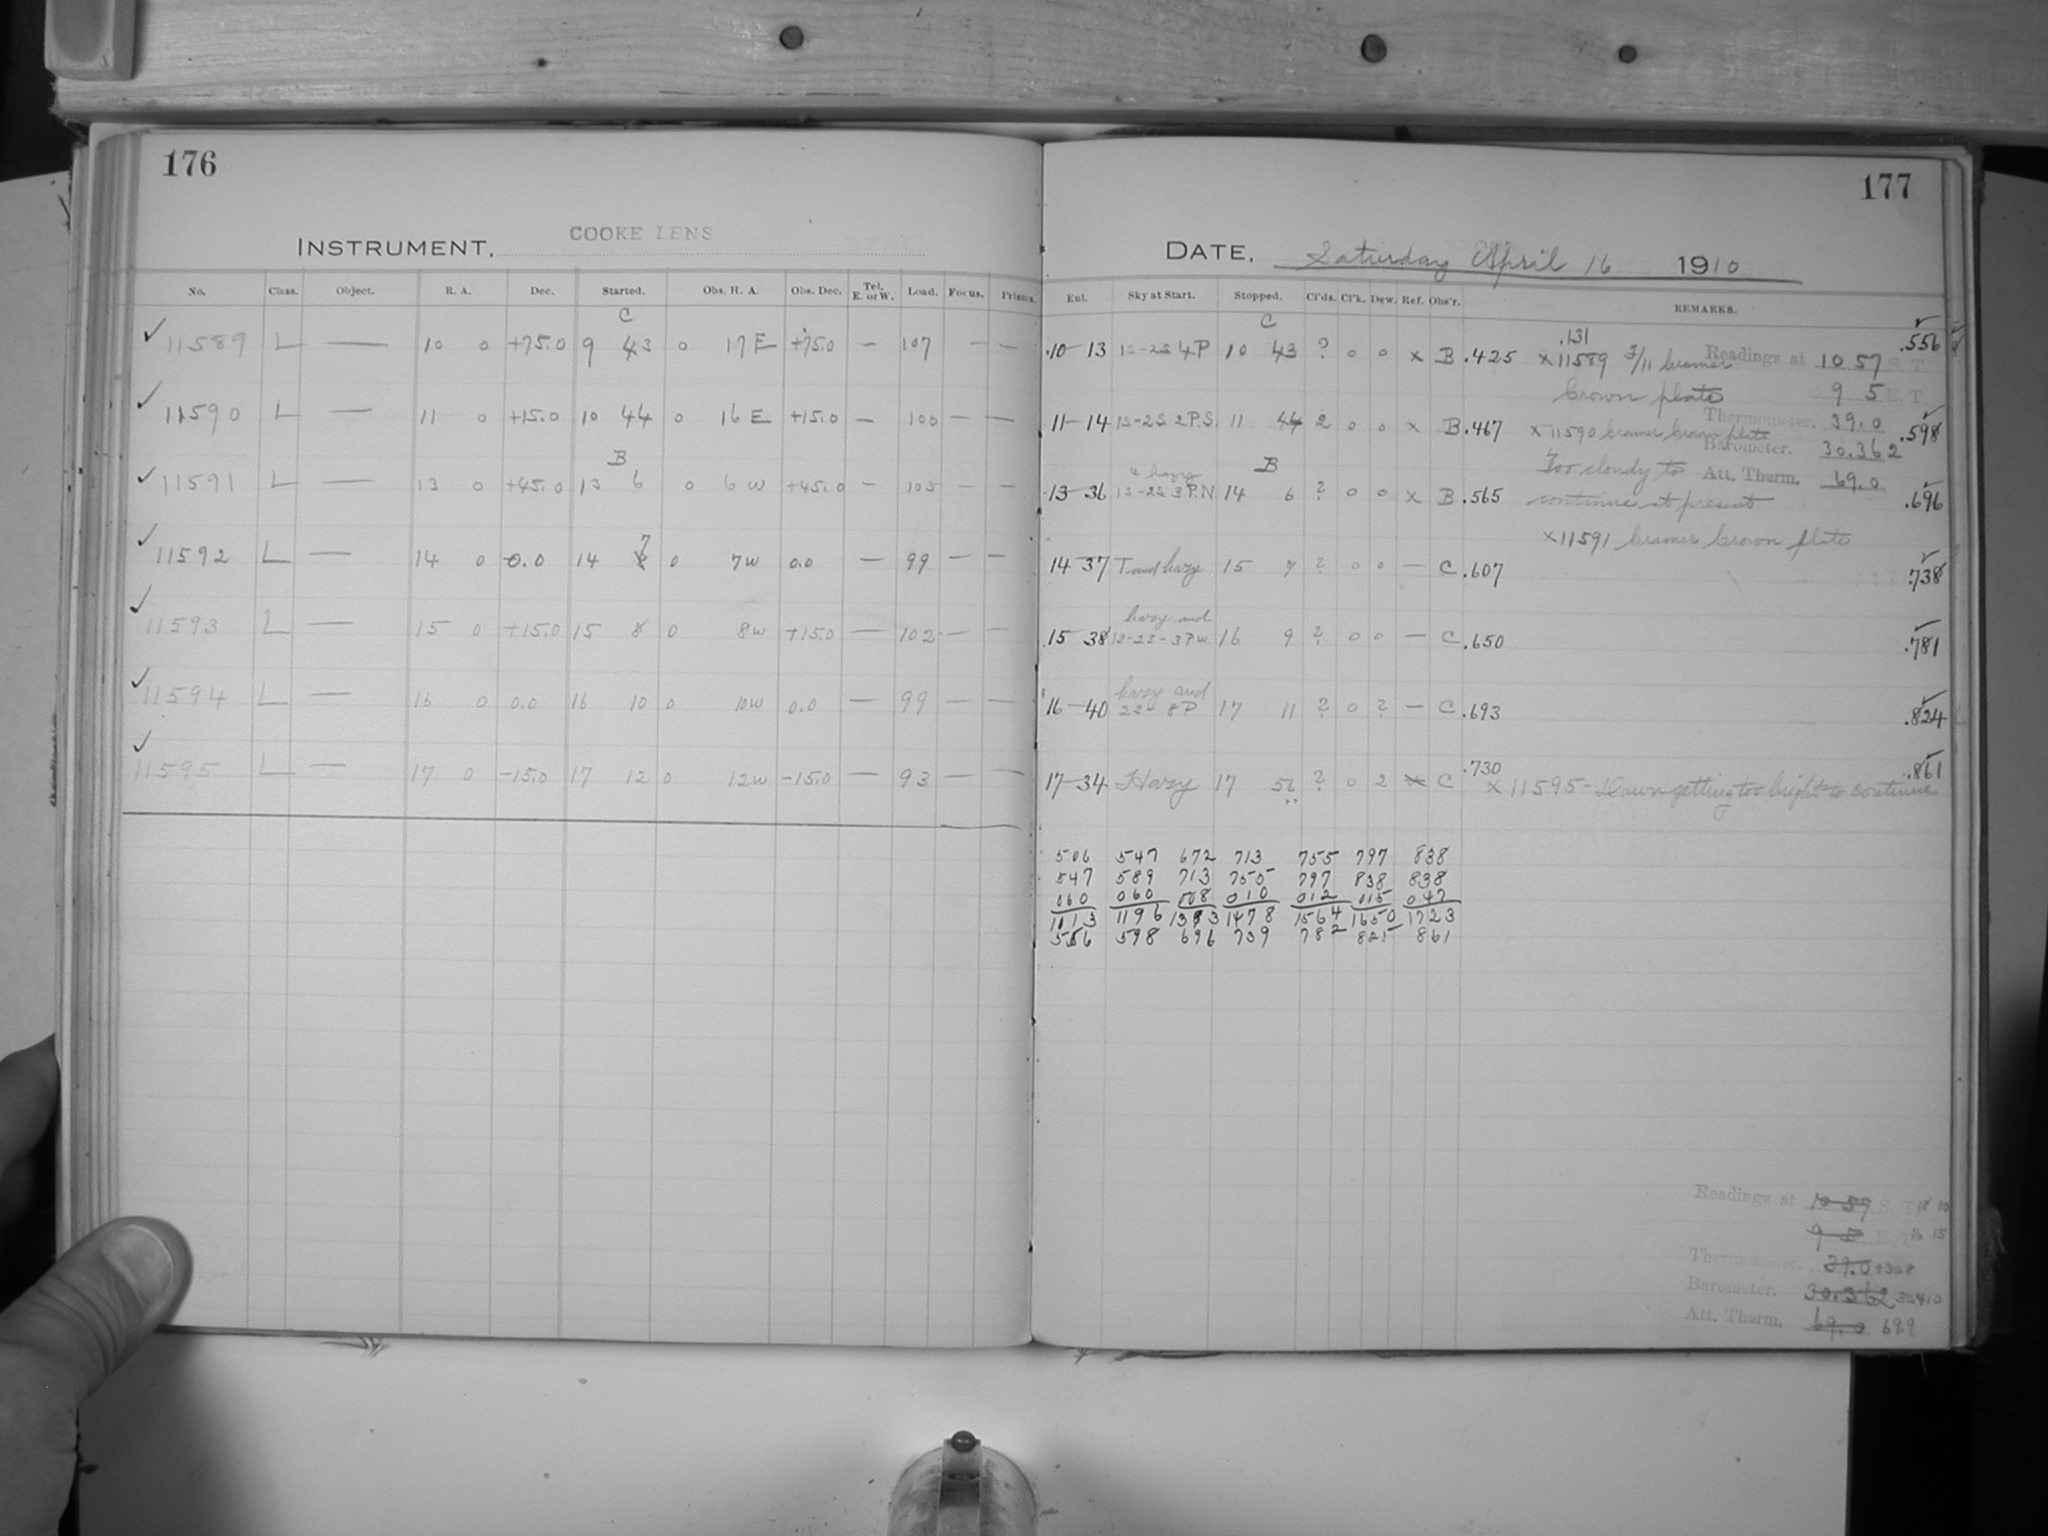 176
COOKE LENS
INSTRUMENT.
No. Class. Object. R. A. Dec. Started. Obs. H. A. Obs. Dec. Tel. E. or W. Load. Focus. Prisms.
C
11589 L — 10 0 +75.0 9 43 0 17 E +75.0 — 107 — —
11590 L — 11 0 +15.0 10 44 0 16 E +15.0 — 100 — —
B
11591 L — 13 0 +45.0 13 6 0 6 W +45.0 — 105 — —
7
11592 L — 14 0 0.0 14 8 0 7 W 0.0 — 99 — —
11593 L — 15 0 +15.0 15 8 0 8 W +15.0 — 102 — —
11594 L — 16 0 0.0 16 10 0 10 W 0.0 — 99 — —
11595 L — 17 0 -15.0 17 12 0 12 W -15.0 — 93 — —
177
DATE. Saturday April 16 1910
Enl. Sky at Start. Stopped. Cl'ds. Cl'k. Dew. Ref. Obs'r. REMARKS.
C
.131
10-13 1S-2S 4P 10 43 ? 0 0 x B .425 x 11589 3/11 Cramer .556
Readings at 10 57 S. T.
Crown plate 9 5 E. T.
Thermometer. 39.0
11-14 1S-2S 2P.S. 11 44 2 0 0 x B .467 x 11590 Cramer Crown plate .598
Barometer. 30.362
Too cloudy to Att. Therm. 69.0
B
& hazy
13-36 1S-2S 3P.N 14 6 ? 0 0 x B .565 continue at present .696
x 11591 Cramer Crown plate
14-37 T and hazy 15 7 ? 0 0 — C .607 .738
hazy and
15-38 1S-2S-3P W 16 9 ? 0 0 — C .650 .781
hazy and
16-40 2S- 8P 17 11 ? 0 ? — C .693 .824
.730 .861
17-34 Hazy 17 56 ? 0 2 x C x 11595- Dawn getting too bright to continue
506 547 672 713 755 797 838
547 589 713 755 797 838 838
060 060 008 010 012 015 047
1113 1196 1393 1478 1564 1650 1723
556 598 696 739 782 825 861
Readings at 10 57 S. T. 18 10
9 5 E. T. 16 15
Thermometer. 39.0
Barometer. 30.362
Att. Therm. 69.0 69.9